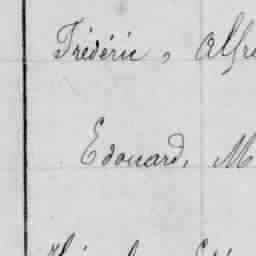 Frédéric, Alfre
Edouard, M